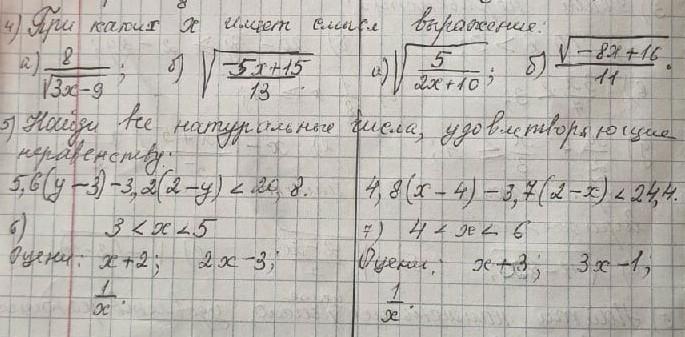 4) При каких x имеет смысл выражение:
а) 8/√(3x-9); б) √((-5x+15)/13) а) √(5/(2x+10)); б) √(-8x+16)/11.
5) Найди все натуральные числа, удовлетворяющие
неравенству:
5,6(y-3)-3,2(2-y) < 20,8. 4,8(x-4)-3,7(2-x) < 24,4.
6) 3 < x < 5 7) 4 < x < 6
Оцени: x+2; 2x-3; Оцени: x+3; 3x-1;
1/x. 1/x.